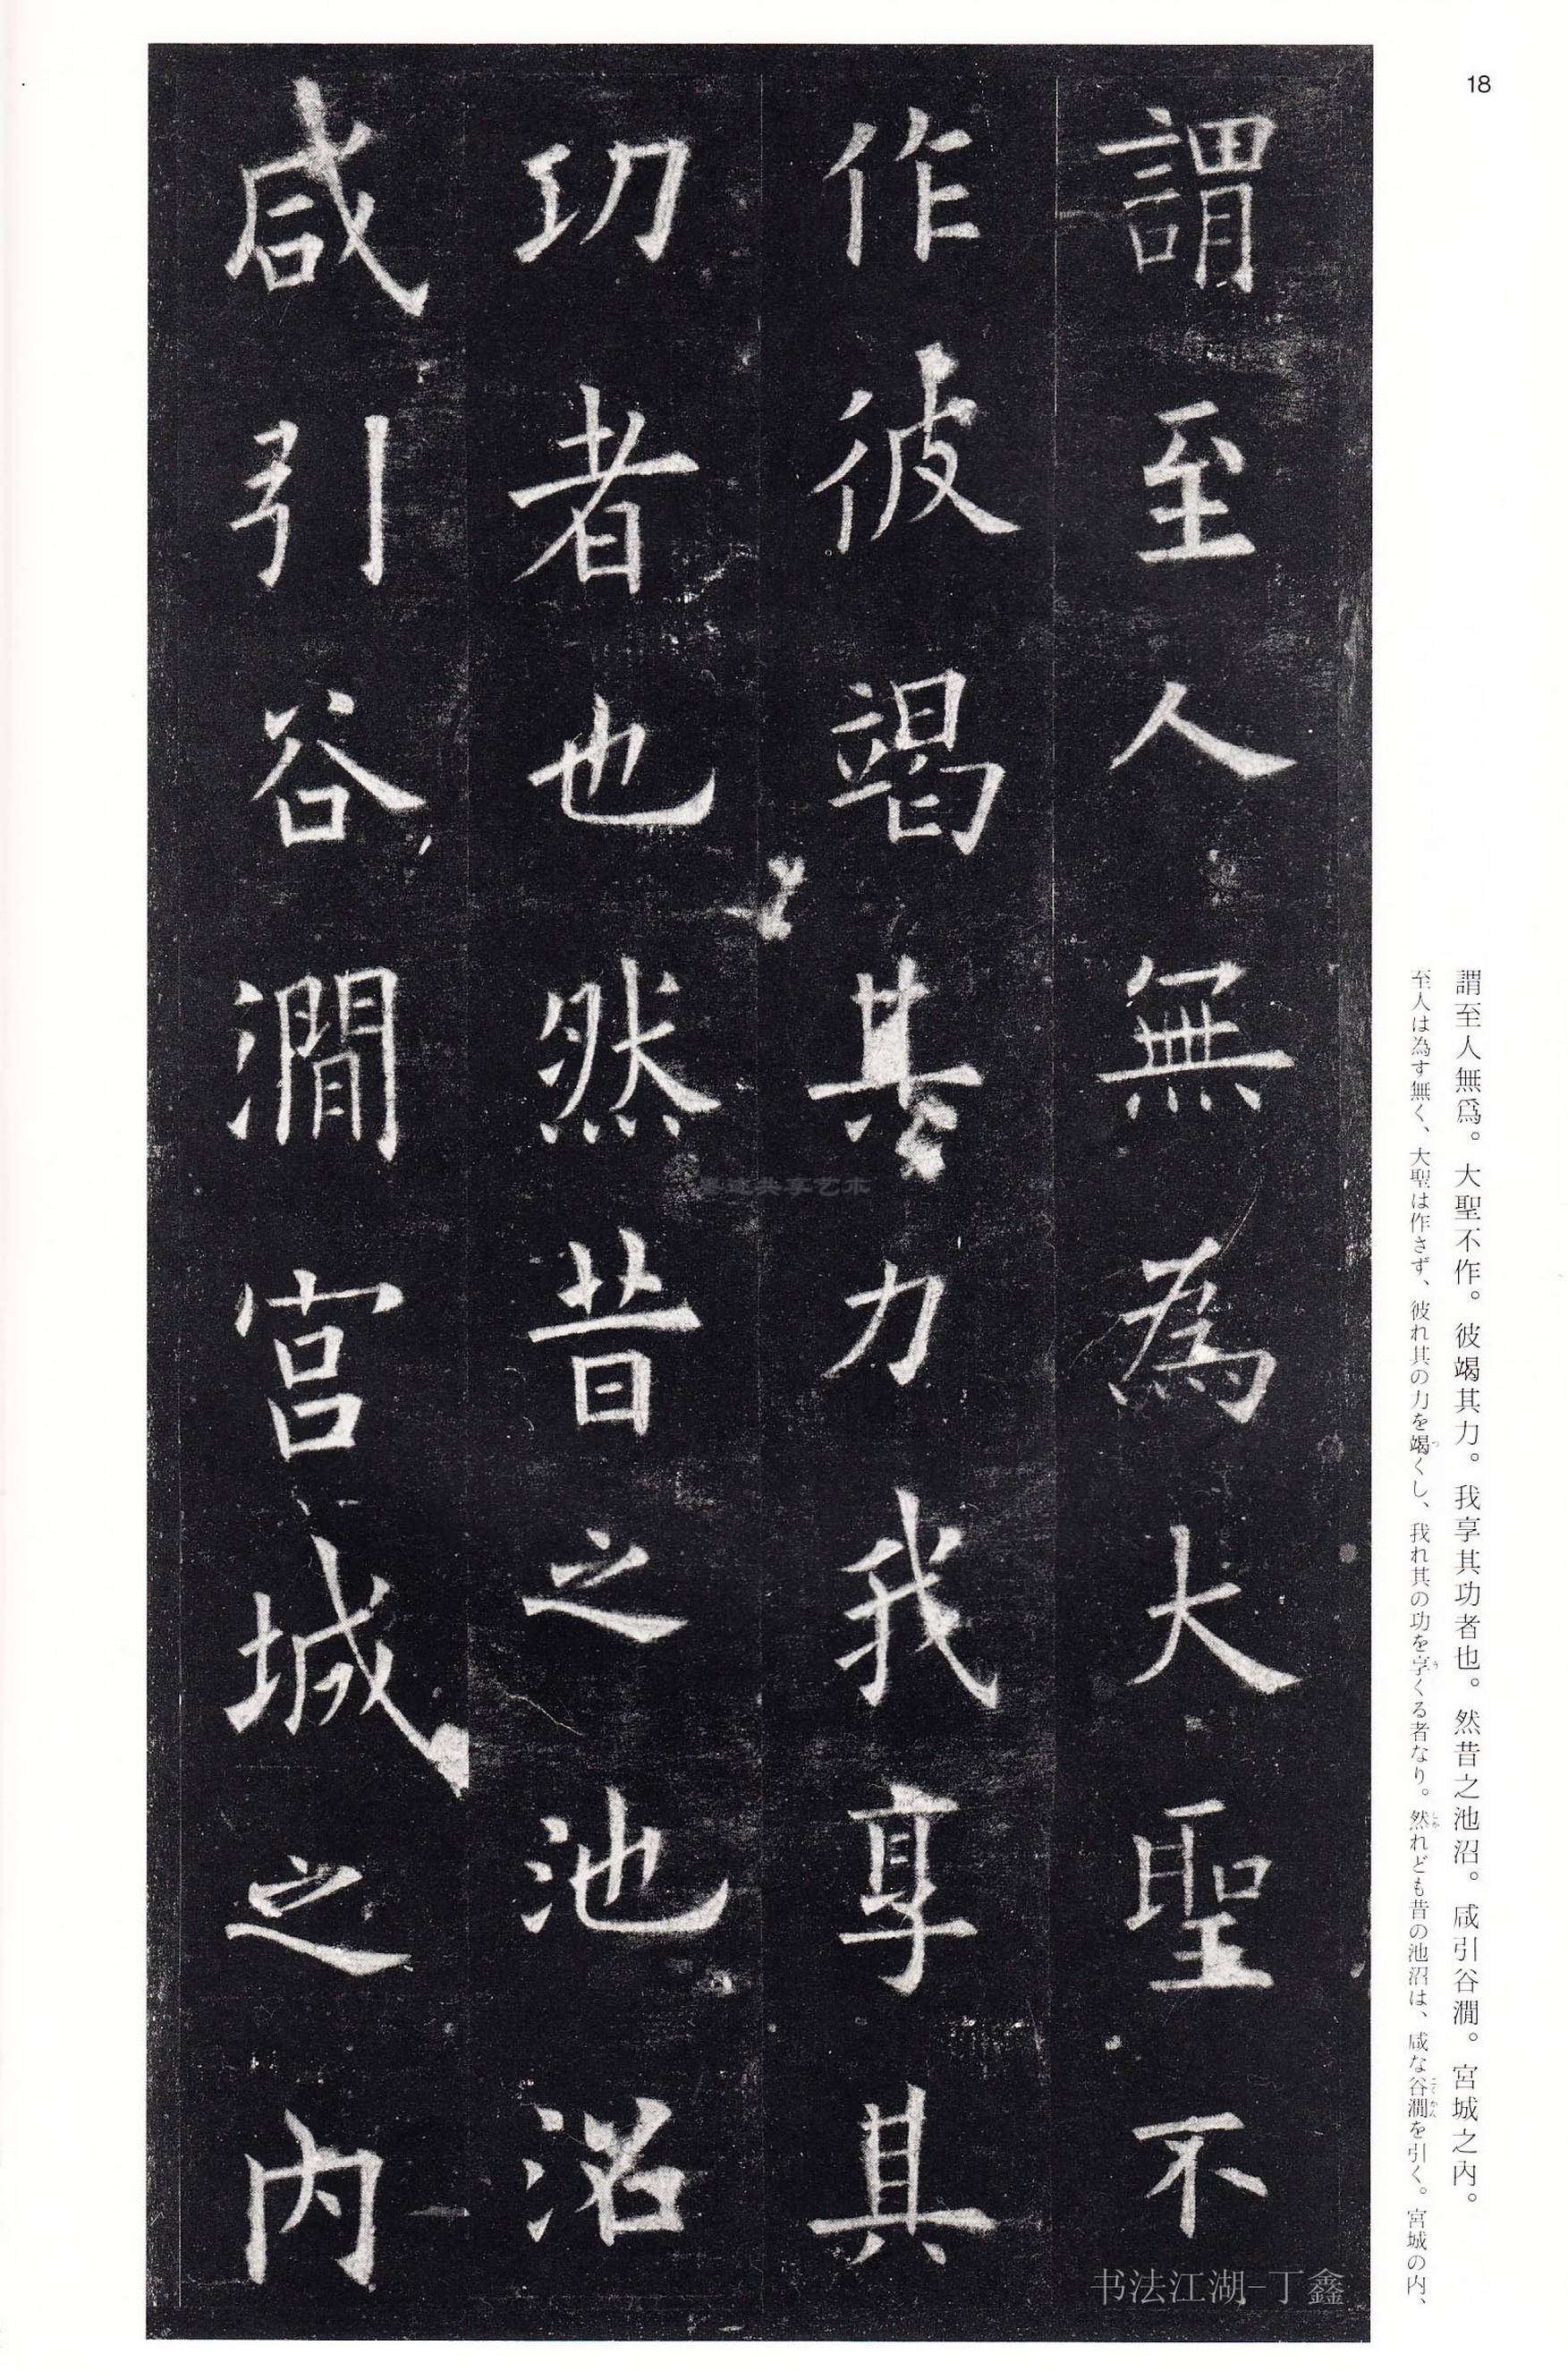 18
謂至人無為大聖不
作彼竭其力我享其
功者也然昔之池沼
咸引谷澗宮城之內
謂至人無爲。大聖不作。彼竭其力。我享其功者也。然昔之池沼。咸引谷澗。宮城之內。
至人は為す無く、大聖は作さず、彼れ其の力を竭くし、我れ其の功を享くる者なり。然れども昔の池沼は、咸な谷澗を引く。宮城の内、
书法江湖-丁鑫